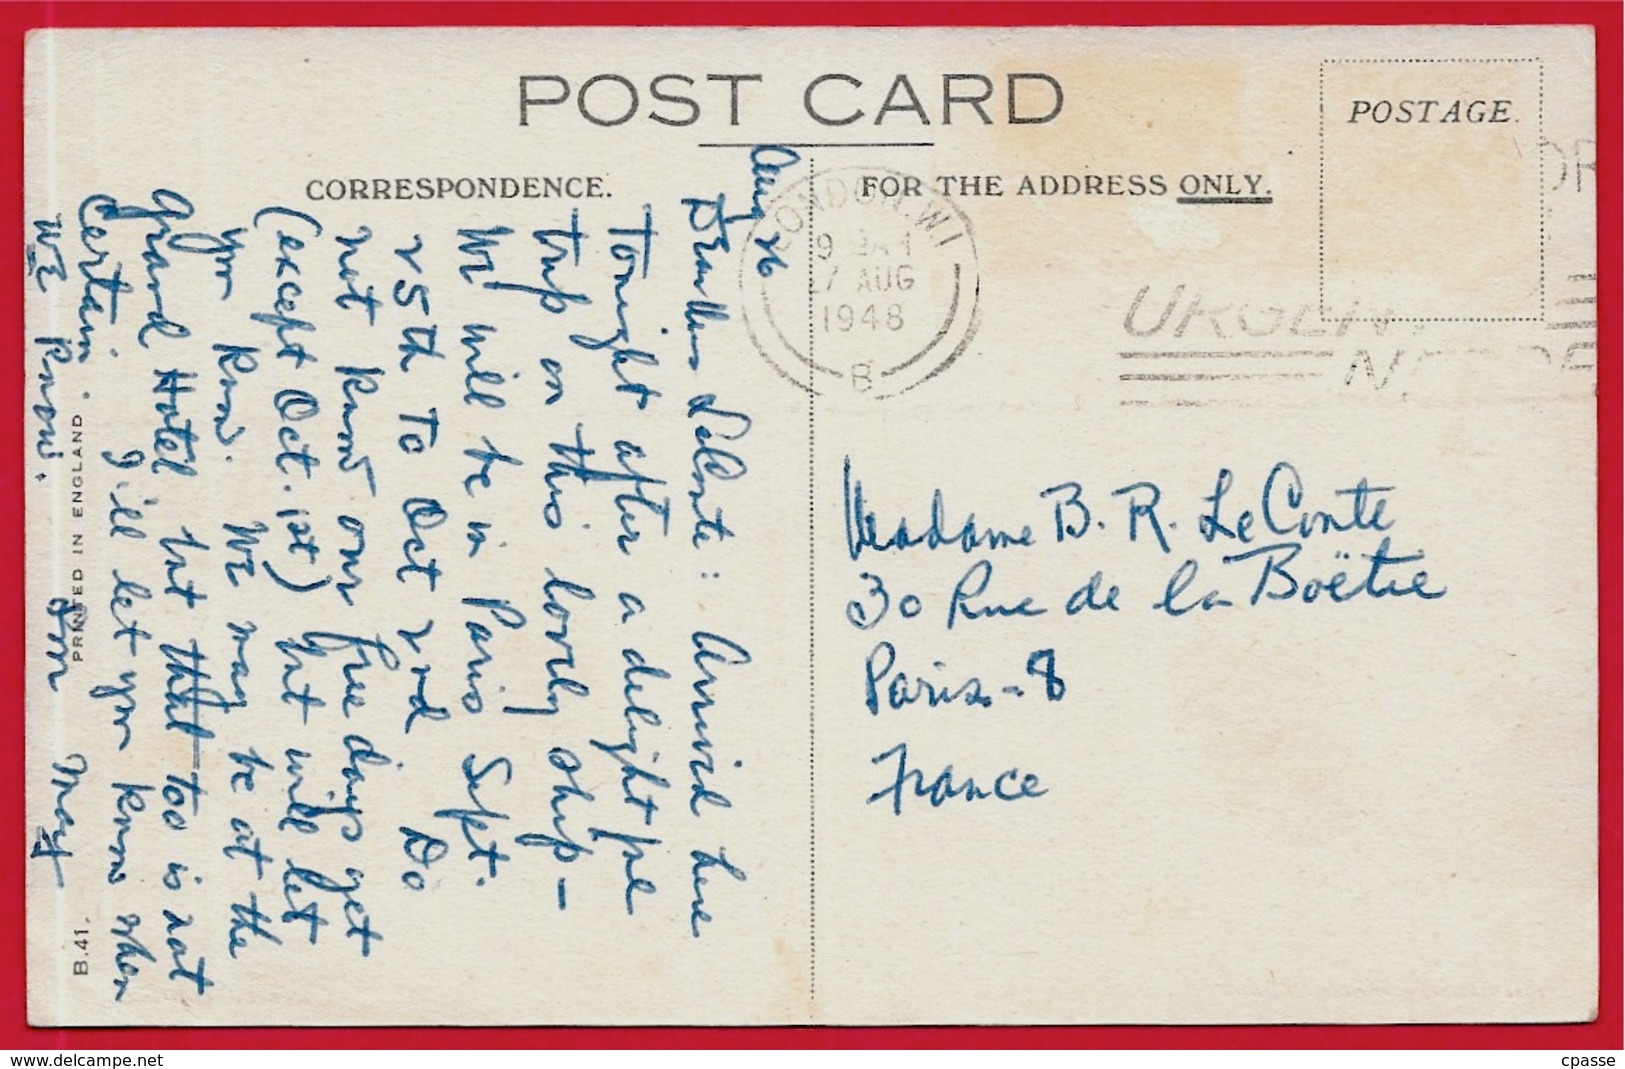 POST CARD
POSTAGE.
CORRESPONDENCE.
FOR THE ADDRESS ONLY.
LONDON. W.1
27 AUG
1948
B
URGENT
Aug 26
LeConte: Arrived here
Tonight after a delightful
trip on this lovely ship –
We will be in Paris Sept.
25th To Oct 2nd Do
not know our free days yet
(except Oct. 1st) but will let
you know. We may be at the
Grand Hotel but that too is not
Certain. I'll let you know when
we know.
Mary
Madame B. R. LeConte
30 Rue de la Boëtie
Paris - 8
France
PRINTED IN ENGLAND
B.41.
delcampe.net
cpasse